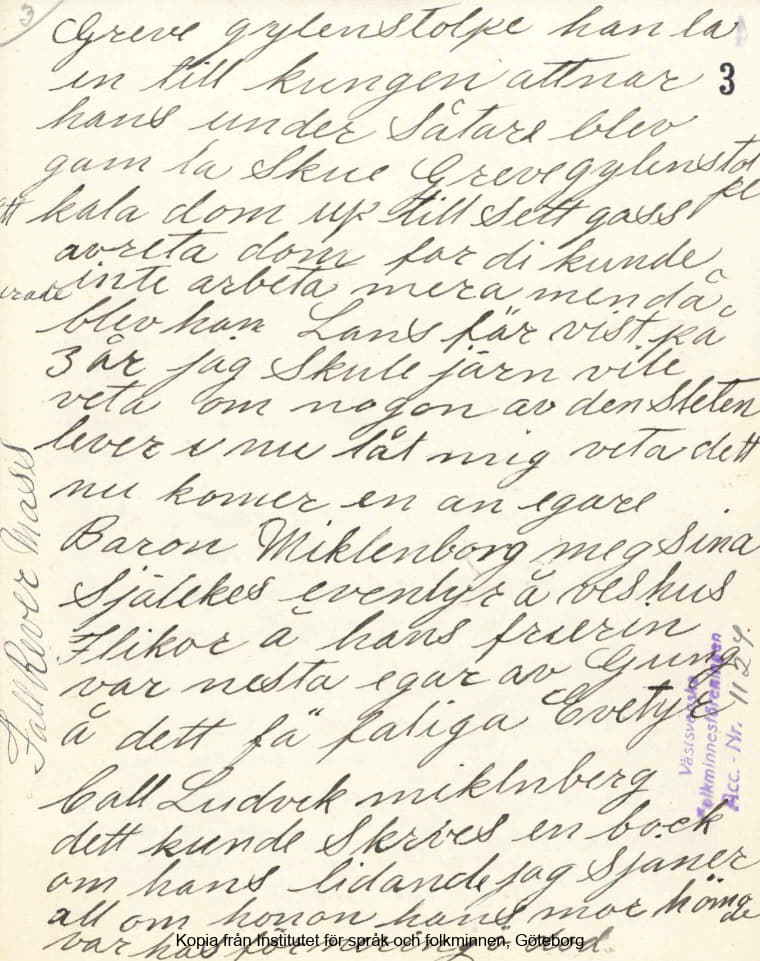 3
3
Greve gylenstolpe han la
in till kungen att nar
hans under såtare blev
gam la skue Greve gylenstol
pe
att kala dom up till sett gass
avreta dom for di kunde
inte arbeta mera men då
blev han Lans får vist på
3 år jag skule järn vile
veta om nogon av den sleten
lever i nu låt mig veta dett
nu komer en an egare
Baron Miklenborg meg sina
Själekes eventyr å veshus
Flikor å hans frierin
var nesta egar av Gung
å dett få faliga Evetyr
Call Ludvek miklnberg
dett kunde skrives en bock
om hans lidande jag sjäner
all om honon hans mor
var hos
Fall Rever Mass
Västsvenska
Folkminnesföreningen
Acc.-Nr. 1124.
Kopia från Institutet för språk och folkminnen, Göteborg